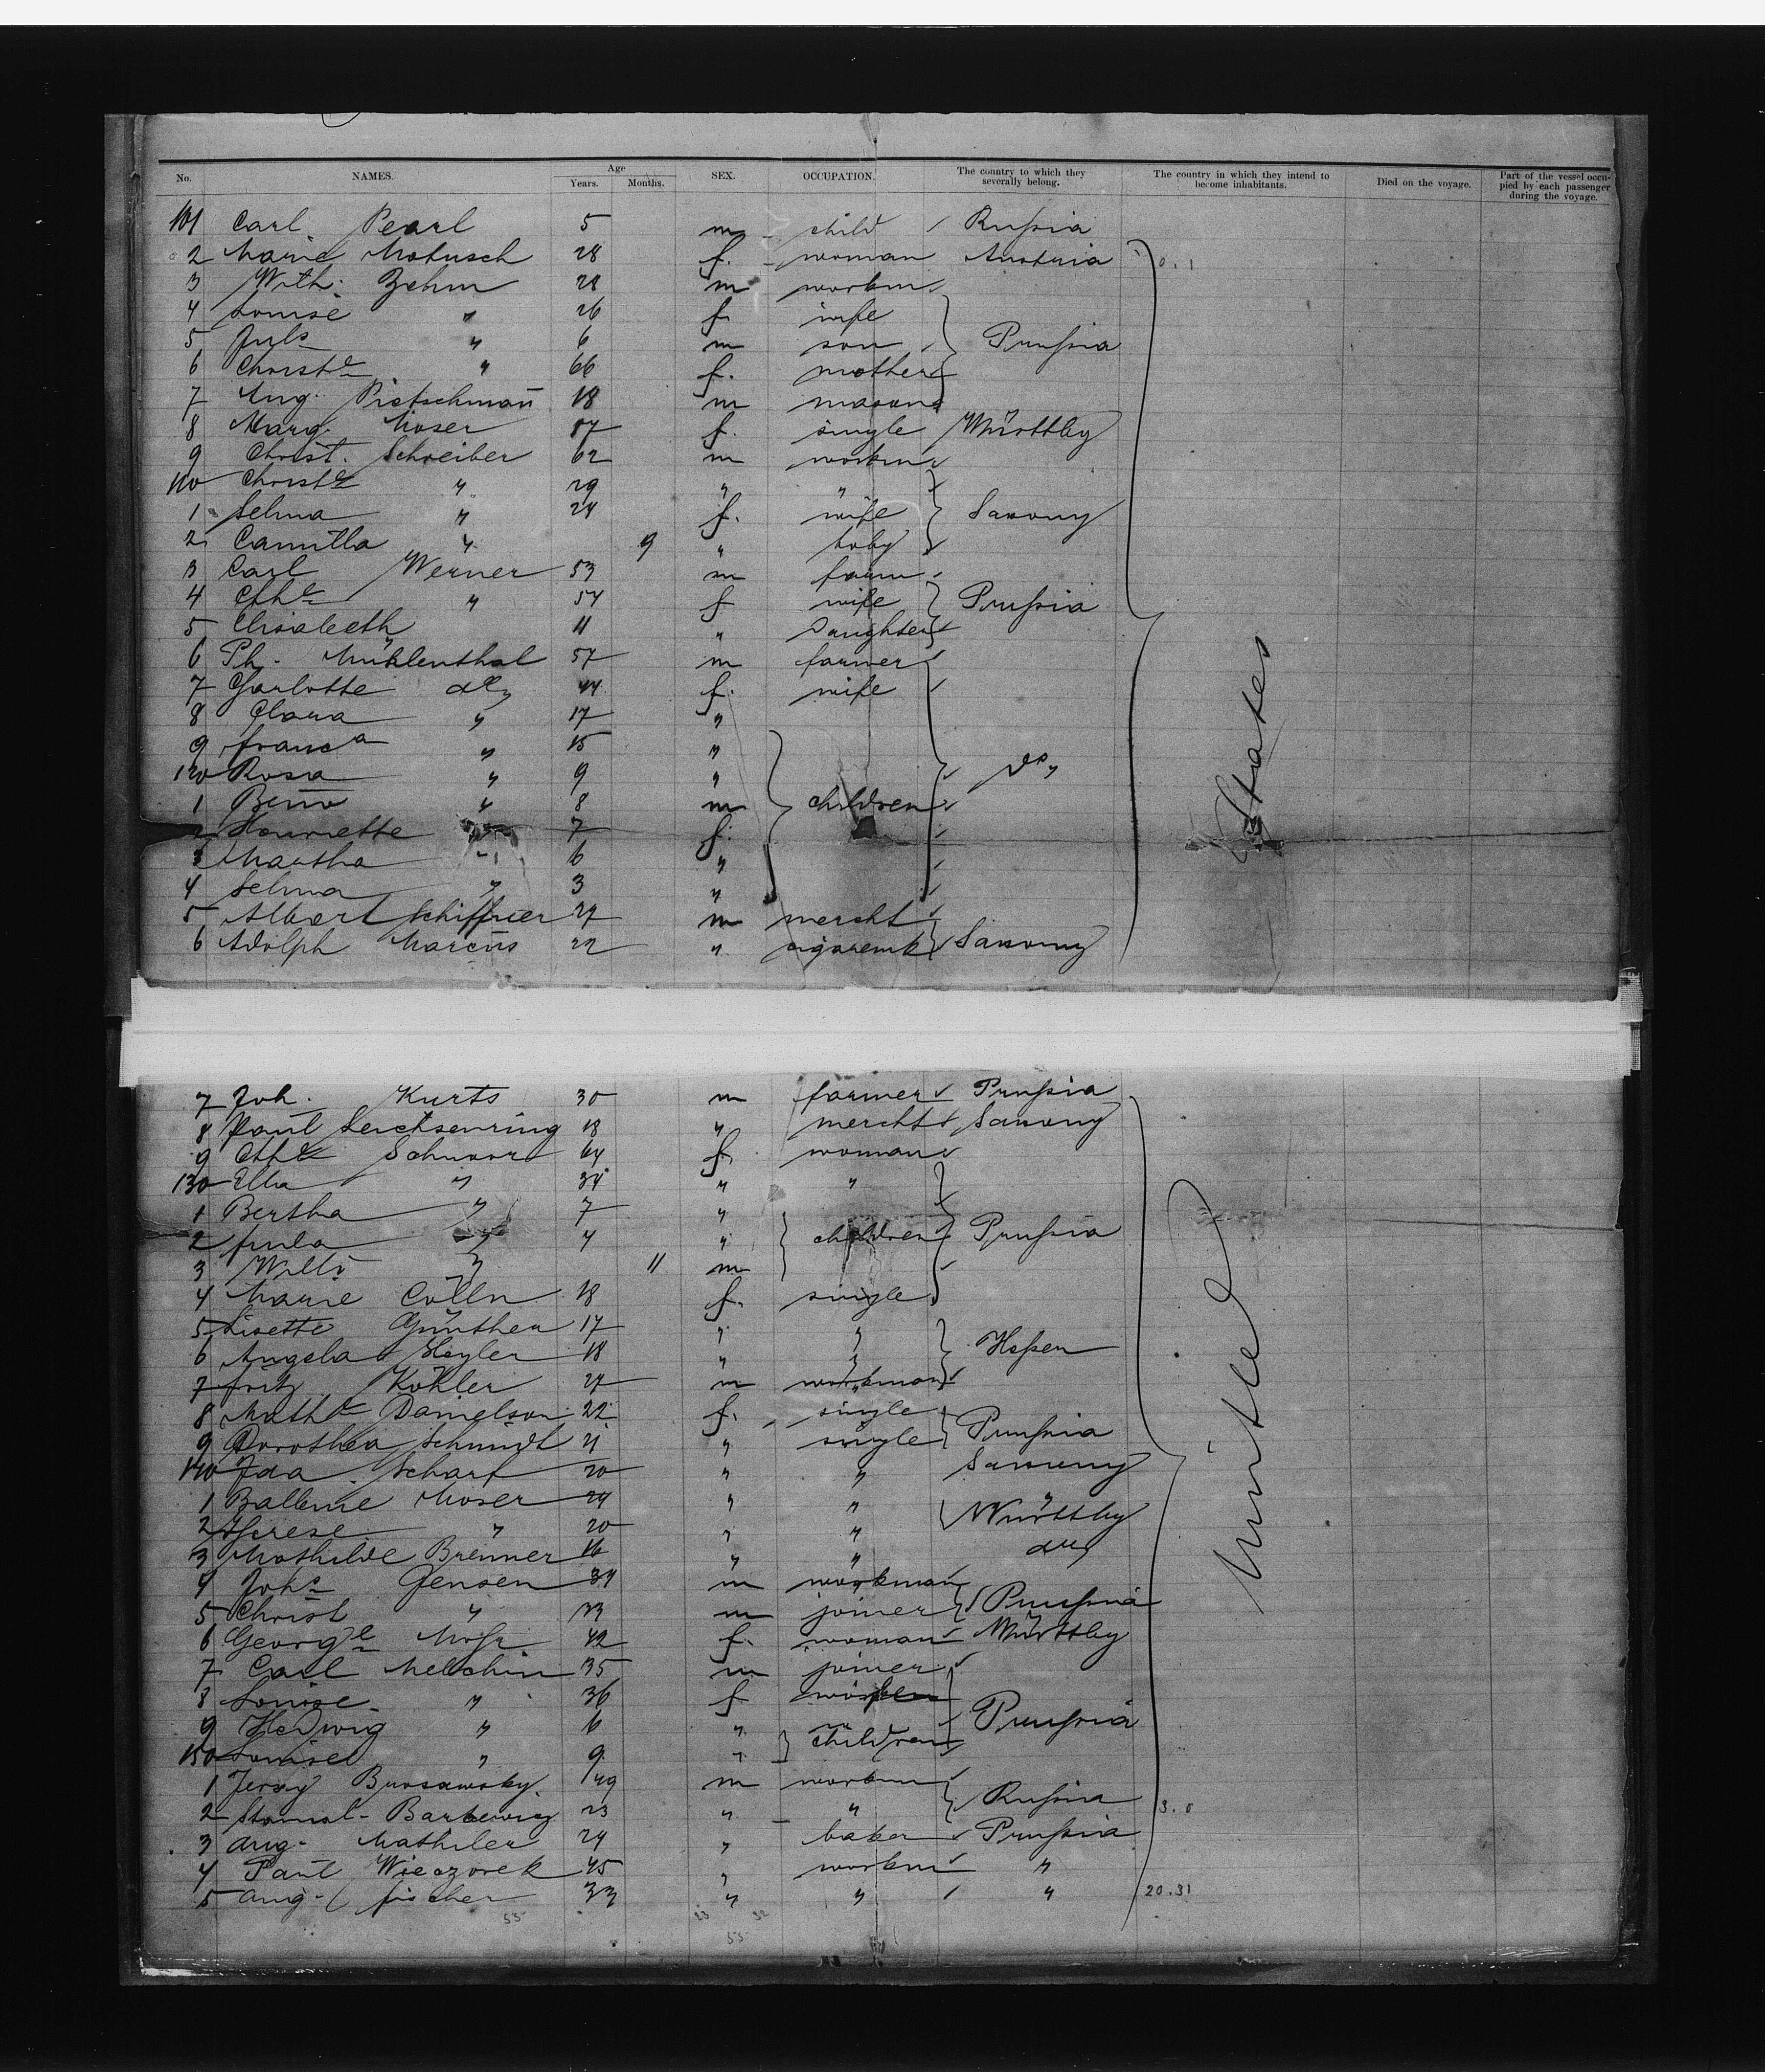 No. NAMES. Age Years. Months. SEX. OCCUPATION. The country to which they severally belong. The country in which they intend to become inhabitants. Died on the voyage. Part of the vessel occupied by each passenger during the voyage.
101 Carl Pearl 5 m child Rußia
2 Marie Motusch 28 f. woman Austria
3 Wilh. Zehm 28 m workm
4 Louise " 26 f wife
5 Juls " 6 m son Prußia
6 Christe " 66 f. mother
7 Aug. Pietschmañ 18 m mason
8 Marg. Moser 57 f. single Württbg
9 Christ. Schreiber 62 m workm
110 Christe " 29 " "
1 Selma " 24 f. wife Saxony
2 Camilla " 9 " baby
3 Carl Werner 53 m farm
4 Cthe " 54 f wife Prußia
5 Elisabeth 11 " Daughter
6 Ph. Mühlenthal 57 m farmer
7 Charlotte do 44 f. wife
8 Clara " 17 "
9 Franca " 15 "
120 Rosa " 9 " do
1 Beno " 8 m children
2 Henriette " 7 f.
3 Martha " 6 "
4 Selma " 3 "
5 Albert Schiffner 27 m mercht
6 Adolph Marcus 22 " cigaremk Saxony
7 Joh. Kurts 30 m farmer Prußia
8 Paul Leichsenring 18 " mercht Saxony
9 Cthe Schwarz 64 f. woman
130 Ella " 34 " "
1 Bertha " 7 "
2 Jula " 4 " children Prußia
3 Willi " 11 m
4 Marie Cölln 18 f. single
5 Lisette Günther 17 " "
6 Angela Heyler 18 " " Heßen
7 Fritz Köhler 27 m workman
8 Mathe Danielson 22 f. single
9 Dorothea Schmidt 21 " single Prußia
140 Ida Scharf 20 " " Saxony
1 Ballerine Moser 24 " " Württbg
2 Therese " 20 " "
3 Mathilde Brenner 16 " " do
4 Johs Jensen 34 m workman
5 Christ " 23 m joiner Prußia
6 George Moser 42 f. woman Württbg
7 Carl Melchin 35 m joiner
8 Louise " 36 f
9 Hedwig " 6 " Prußia
150 Louise " 9 " children
1 Jerzy Bursawsky 49 m workm
2 Stanisl. Bartewicz 23 " " Rußia
3 Aug. Mathiler 24 " baker Prußia
4 Paul Wieczorek 45 " workm "
5 Aug. Fischer 33 " " "
United States
20.31